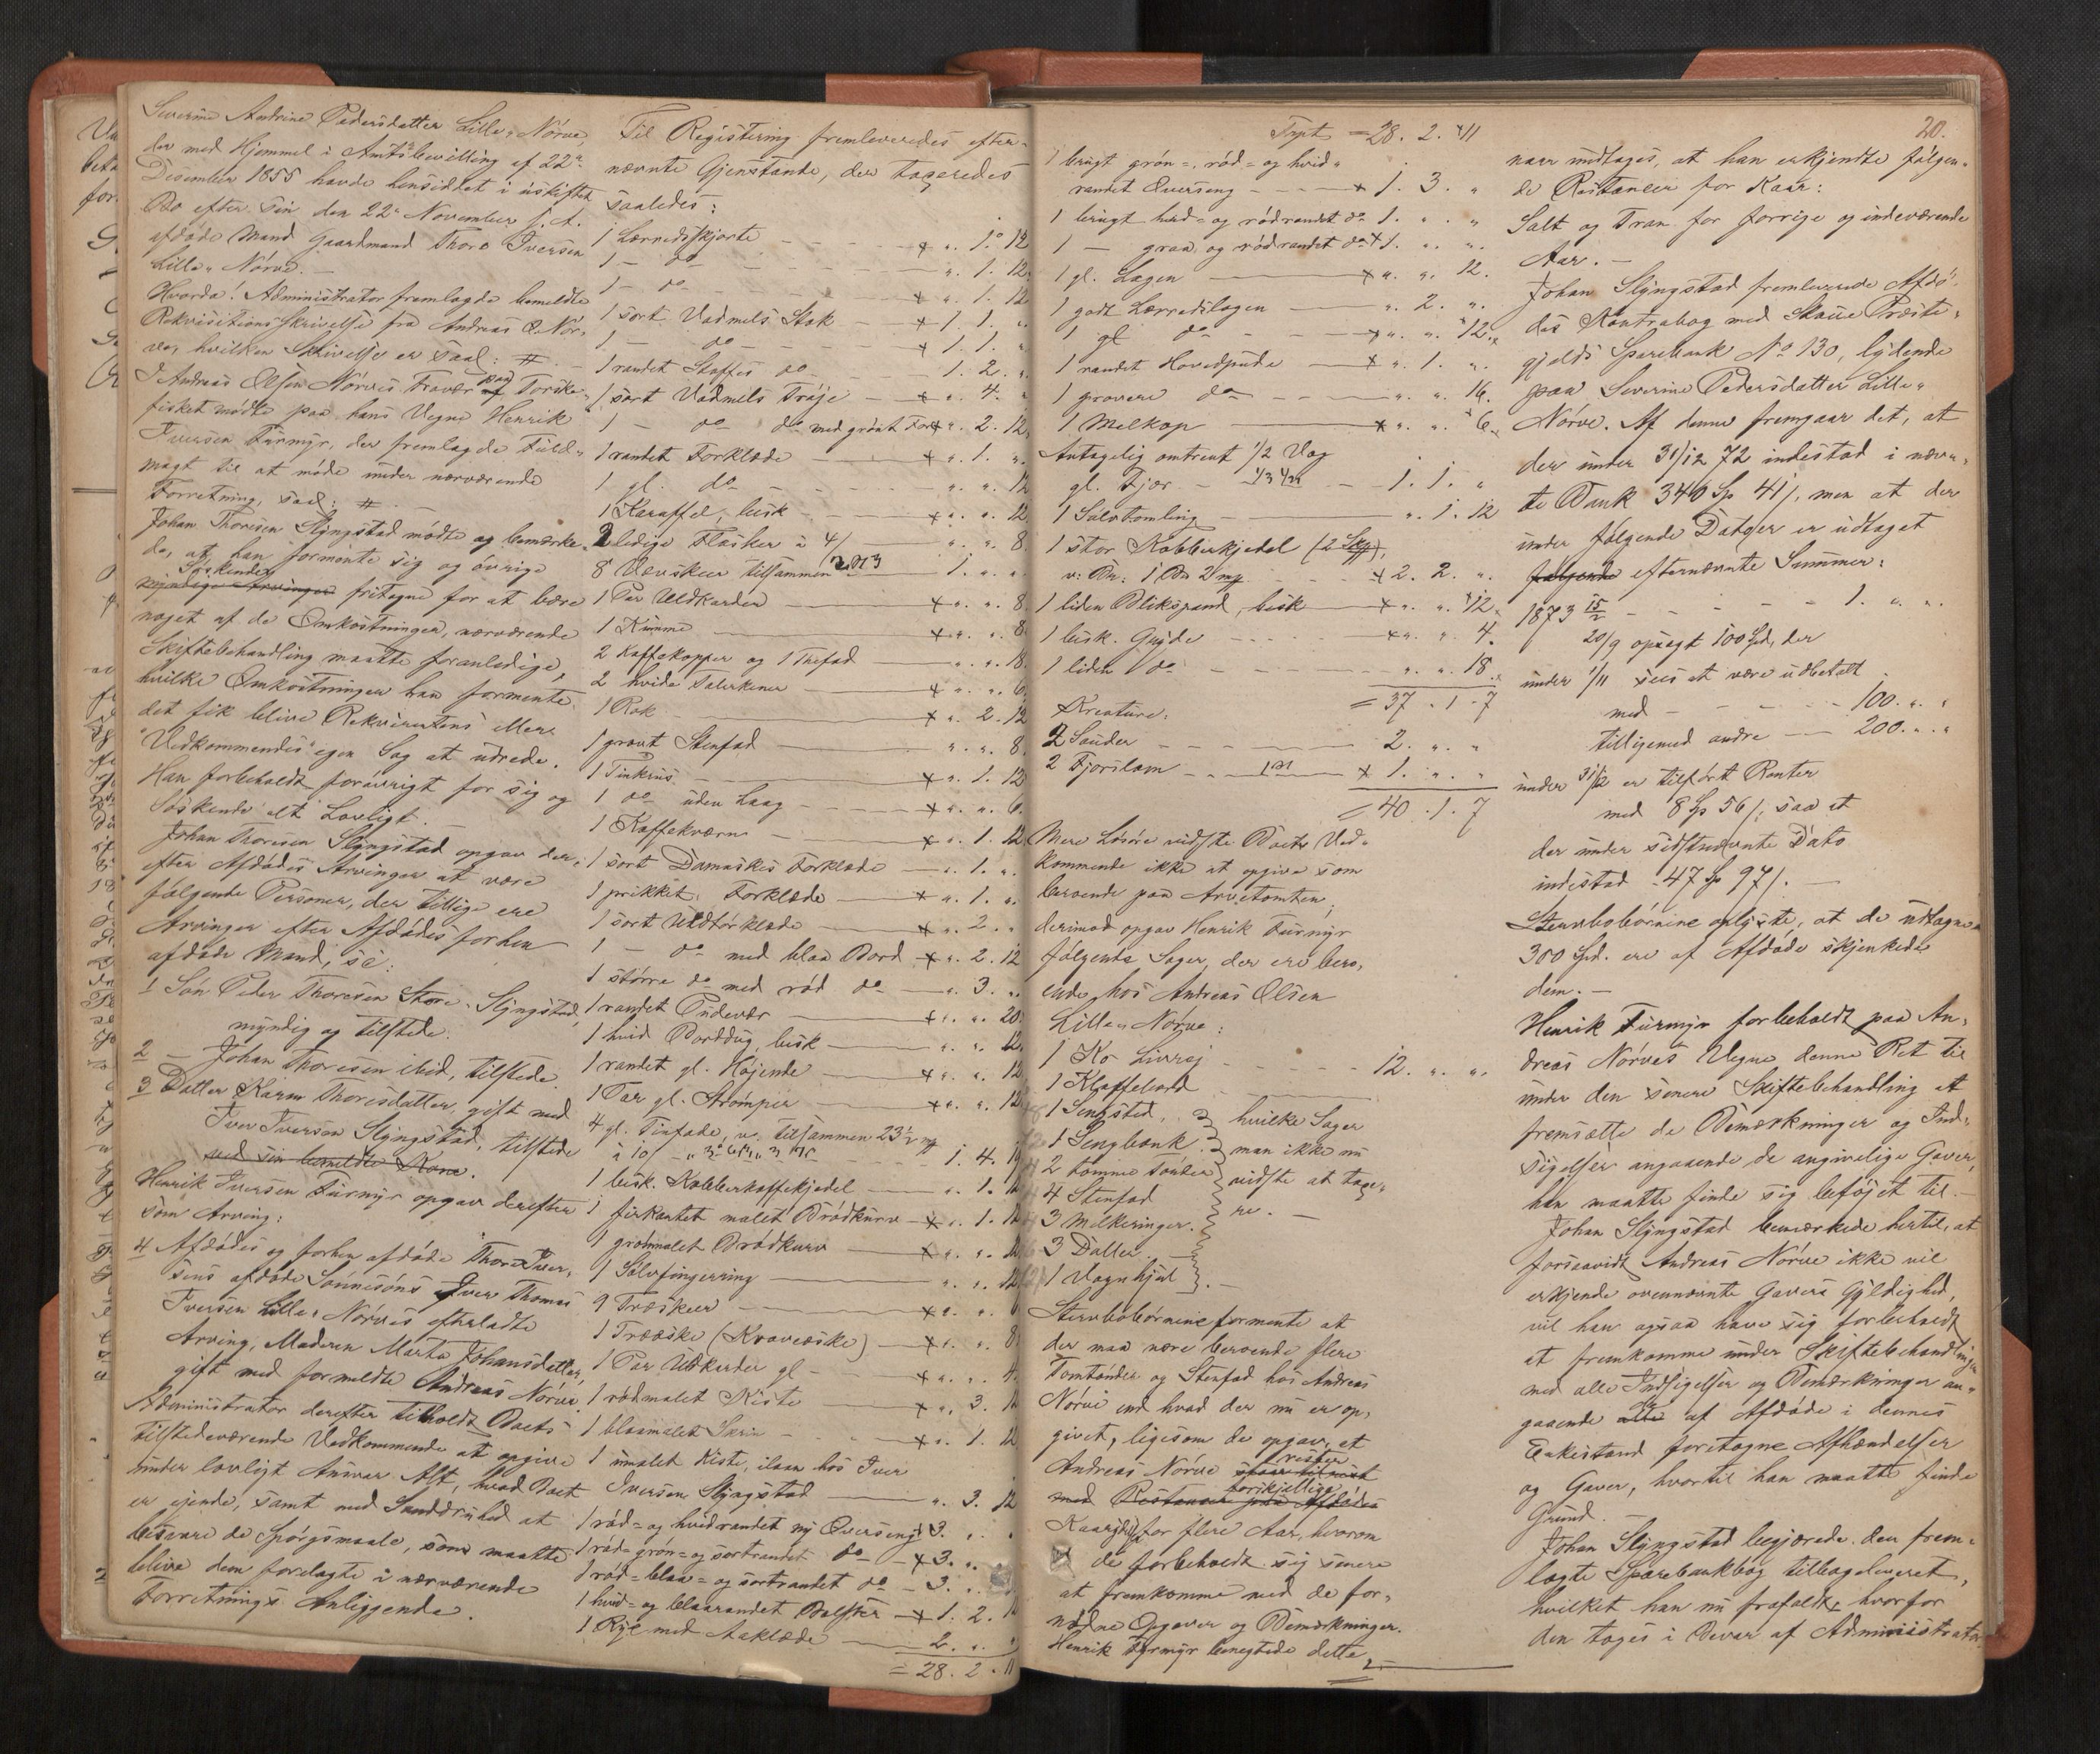 Severine Andrine Pedersdatter Lille-Nørve,
der med Hjemmel i Amtsbevilling af 22de
Desember 1855 havde hensiddet i uskiftet
Bo efter sin den 22de November s. A.
afdøde Mand Gaardmand Thore Iversen
Lille-Nørve. —
Hvorda! Administrator fremlagde bemeldte
Rekvisitionsskrivelse fra Andreas O. Nør-
ve, hvilken Skrivelse er saal: #. —
I Andreas Olsen Nørves Fravær paa Torske-
fisket mødte paa hans Vegne Henrik
Iversen Furmyr, der fremlagde Fuld-
magt til at møde under nærværende
Forretning, saal: #. —
Johan Thoresen Slyngstad mødte og bemærke-
de, at han formente sig og øvrige
Søskende
myndige Arvinger fritagne for at bære
noget af de Omkostninger, nærværende
Skiftebehandling maatte foranledige,
hvilke Omkostninger han formente
det fik blive Rekvirentens eller
Vedkommendes egen Sag at udrede.
Han forbeholdt forøvrigt for sig og
Søskende alt Lovligt. —
Johan Thoresen Slyngstad opgav der-
efter Afdødes Arvinger at være
følgende Personer, der tillige ere
Arvinger efter Afdødes forhen
afdøde Mand, se:
1 Søn Peder Thoresen Store-Slyngstad,
myndig og tilstede.
2 — Johan Thoresen ibid, tilstede.
3 Datter Karen Thoresdatter, gift med
Iver Iversen Slyngstad, tilstede
med sin bemeldte Kone.
Henrik Iversen Furmyr opgav derefter
som Arving:
4 Afdødes og forhen afdøde Thore Iver-
sens afdøde Sønnesøns Iver Thomas
Iversen Lille-Nørves efterladte
Arving, Moderen Marta Johansdatter,
gift med formeldte Andreas Nørve.
Administrator derefter tilholdt Boets
tilstedeværende Vedkommende at opgive
under lovligt Ansvar Alt, hvad Boet
er ejende, samt med Sanddruhed at
besvare de Spørgsmaale, som maatte
blive dem forelagte i nærværende
Forretnings Anliggende.
Til Registering fremleveredes efter-
nævnte Gjenstande, der taxeredes
saaledes:
1 Lærredsskjorte - - - x „. 1. 12
1 — do - - - „. 1. 12
1 — do - - - x „. 1. 12
1 sort Vadmels Stak — x 1. 1. „
1 — do — x 1. 1. „
1 randet Stoffes do — 1. 2. „
1 sort Vadmels Trøje — x „. 4. „
1 — do do med grønt For x „. 2. 12
1 randet Forklæde — x „. 1. „
1 gl. do - - „. „. 12
1 Karaffel, besk - - x „. „. 12
2 ledige Flasker à 4/ — „. „. 8
8 Vævskeer tilsammen 1. „. „
1 Par Uldkarder — x „. „. 8
1 Kumme — x „. „. 8
2 Kaffekopper og 1 Thefad — „. „. 18
2 hvide Talerkener — x „. „. 6
1 Rok — x „. 2. 12
1 grønt Stenfad — „. „. 8
1 Tinkrus — x „. 1. 12
1 do uden Laag - - x „. „. 6
1 Kaffekværn — x „. 1. 12
1 sort Damaskes Forklæde — „. 1. „
1 prikket Forklæde — x „. 1. „
1 sort Uldtørklæde — x „. 2. „
1 — do med blaa Bord — x „. 2. 12
1 større do med rød do — „. 3. „
1 randet Pudevær — x „. „. 20
1 hvid Borddug, besk — „. „. 12
1 randet gl. Højende — x „. „. 12
1 Par gl. Strømper — x „. „. 12
4 gl. Tinfade, v. tilsammen 23½
à 10/ 1. 4.
1 besk. Kobberkaffekjedel — „. 1. 12
1 firkantet malet Brødkurv — x „. 1. 12
1 grønmalet Brødkurv — x „. „. 12
1 Sølvfingerring — „. „. 12
9 Træskeer — x „. „. 6
1 Trææske (Kraveæske) — x „. „. 8
1 Par Uldkarder gl — x „. „. 4
1 rødmalet Kiste — x „. 3. 12
1 blaamalet Skrin - - x „. 1. 12
1 umalet Kiste, ilaan hos Iver
Iversen Slyngstad — „. 3. 12
1 rød- og hvidrandet ny Overseng 3. „. „
1 rød- grøn- og sortrandet do — x 3. „.
1 rød- blaa- og sortrandet do — 3. „.
1 hvid- og blaarandet Bolster — x 1. 2.
1 Rye med Aaklæde — 2. „.
= 28. 2. 11
Trpt = 28. 2. 11
20.
1 brugt grøn-, rød- og hvid-
randet Overseng - - - x 1. 3. „
1 brugt hvid- og rødrandet do 1. „. „
1 — graa og rødrandet do x 1. „. „
1 gl. Lagen — x „. „. 12.
1 godt Lærredslagen — „. 2. „
1 gl do - - x „. „. 12.
1 randet Hovedpude — x „. 1. „
1 grovere do - - - „. „. 16.
1 Melkop — x „. „. 6.
Antagelig omtrent 1/2 Vog
gl. Fjær - - 1. 1. „
1 Sølvtomling — „. 1. 12
1 stor Kobberkjedel (2 Skp),
v: Bn: 1 Bn 2 mp - - - x 2. 2. „
1 liden Blikspand, besk — x „. „. 12.
1 besk. Gryde - - - - x „. „. 4.
1 liden do - - - „. „. 18.
= 37. 1. 7
Kreature:
2 Souder - - - 2. „. „
2 Fjorslam - - - x 1. „. „
= 40. 1. 7
Mere Løsøre vidste Boets Ved-
kommende ikke at opgive som
beroende paa Arvetomten;
derimod opgav Henrik Furmyr
følgende Sager, der ere bero-
ende hos Andreas Olsen
Lille-Nørve:
1 Ko Livrej - - - - - 12. „. „
1 Klaffebord
1 Sengsted
1 Sengbænk
2 tomme Tønder
4 Stenfad
3 Melkeringer.
3 Daller.
1 Vognhjul
hvilke Sager
man ikke nu
vidste at taxe-
re. —
Stervbobørnene formente at
der maa være beroende flere
Tomtønder og Stenfad hos Andreas
Nørve end hvad der nu er op-
givet, ligesom de opgav, at
Andreas Nørve rester
med forskjellige
Kaar for flere Aar, hvorom
de forbeholdt sig senere
at fremkomme med de for-
nødne Opgaver og Bemærkninger.
Henrik Furmyr benegtede dette,
naar undtages, at han erkjendte følgen-
de Restancer for Kaar:
Salt og Tran for forrige og indeværende
Aar. —
Johan Slyngstad fremleverede Afdø-
des Kontrabog med Skoue Præste-
gjelds Sparebank No 130, lydende
paa Severine Pedersdatter Lille-
Nørve. Af denne fremgaar det, at
der under 31/12 72 indestod i nævn-
te Bank 340 Sp 41/, men at der
under følgende Datoer er udtaget
følgende efternævnte Summer:
1873 15/2 - - - - - 1. „. „
20/9 opsagt 100 Spd, der
under 1/11 sees at være udbetalt
med - - - - - 100. „. „
tilligemed andre — 200. „. „
under 31/12 er tilført Renter
med 8 Sp 56/; saa at
der under sidstnævnte Dato
indestod 47 Sp 97/. —
Stervbobørnene oplyste, at de udtagne
300 Spd. ere af Afdøde skjenkede
dem. —
Henrik Furmyr forbeholdt paa An-
dreas Nørves Vegne denne Ret til
under den senere Skiftebehandling at
fremsætte de Bemærkninger og Ind-
sigelser angaaende de angivelige Gaver,
han maatte finde sig beføjet til. —
Johan Slyngstad bemærkede hertil, at
forsaavidt Andreas Nørve ikke vil
erkjende ovennævnte Gavers Gyldighed,
vil han ogsaa have sig forbeholdt
at fremkomme under Skiftebehandlingen
med alle Indsigelser og Bemærkninger an-
gaaende de af Afdøde i dennes
Enkestand foretagne Afhændelser
og Gaver, hvortil han maatte finde
Grund. —
Johan Slyngstad begjærede den frem-
lagte Sparebankbog tilbageleveret,
hvilket han nu frafaldt, hvorfor
den toges i Bevar af Administrator.